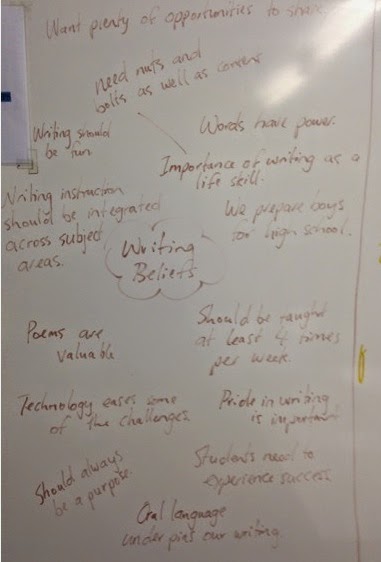 Want plenty of opportunities to share.
need nuts and
bolts as well as content
Writing should
be fun
Words have power.
Importance of writing as a
life skill.
Writing instruction
should be integrated
across subject
areas.
We prepare boys
for high school.
Writing
Beliefs
Poems are
valuable
Should be taught
at least 4 times
per week.
Technology eases some
of the challenges.
Pride in writing
is important
Should always
be a purpose.
Students need to
experience success
Oral language
under pins our writing.